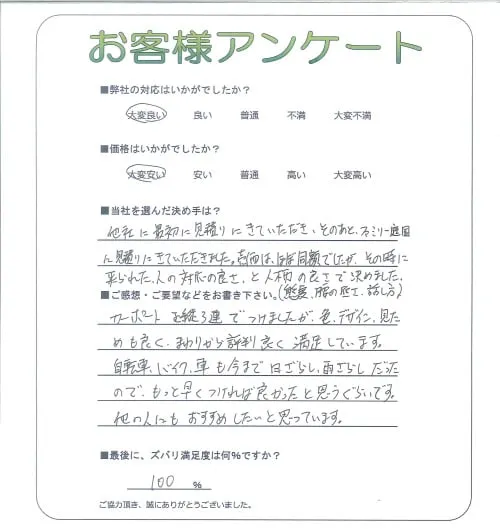 お客様アンケート
■弊社の対応はいかがでしたか？
大変良い 良い 普通 不満 大変不満
■価格はいかがでしたか？
大変安い 安い 普通 高い 大変高い
■当社を選んだ決め手は？
他社に最初に見積りにきていただき、そのあと、ファミリー庭園
に見積りにきていただきました。価格は、ほぼ同額でしたが、その時に
来られた、人の対応の良さ、と人柄の良さで決めました。
(態度、腰の低さ、話し方)
■ご感想・ご要望などをお書き下さい。
カーポートを縦3連でつけましたが、色、デザイン、見た
めも良く、まわりから評判良く満足しています。
自転車、バイク、車も今まで日ざらし、雨ざらしだった
ので、もっと早くつければ良かったと思うぐらいです。
他の人にもおすすめしたいと思っています。
■最後に、ズバリ満足度は何%ですか？
100 %
ご協力頂き、誠にありがとうございました。